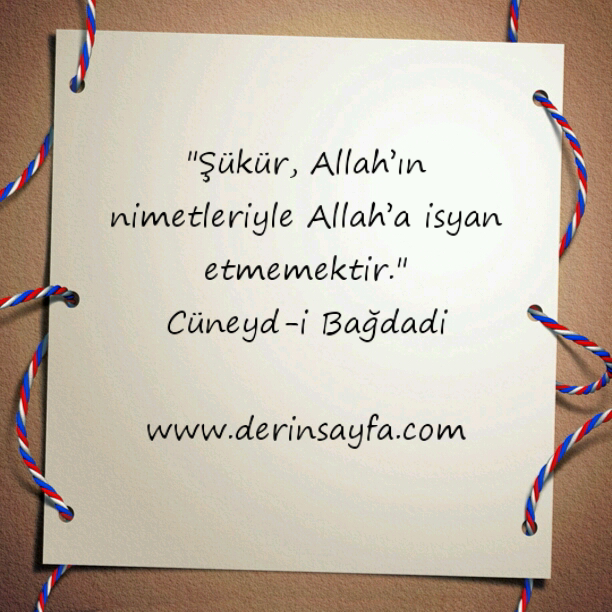 "Şükür, Allah’ın
nimetleriyle Allah’a isyan
etmemektir."
Cüneyd-i Bağdadi
www.derinsayfa.com